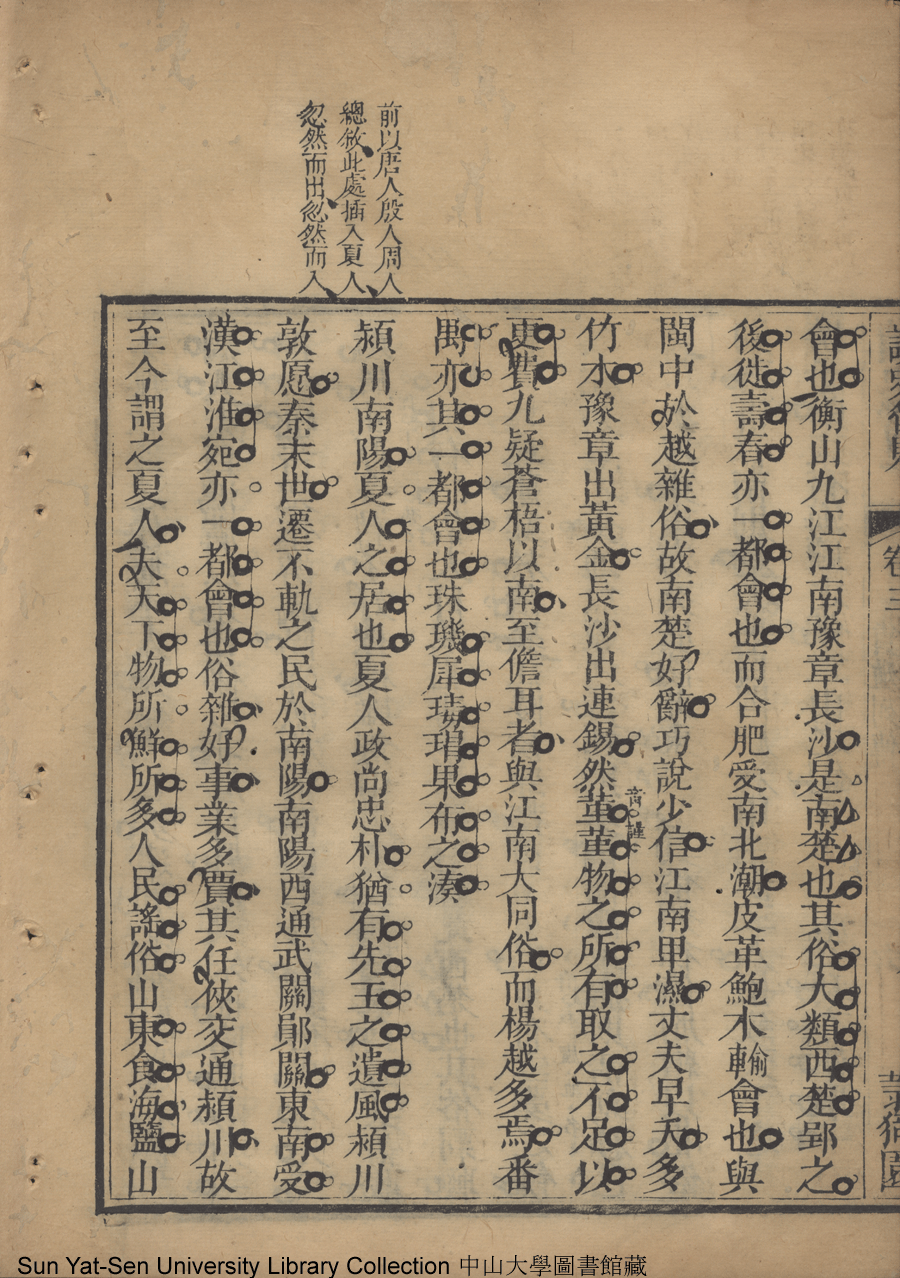 前以唐人殷人周人
總敘此處插入夏人
忽然而出忽然而入
卷三
會也衡山九江江南豫章長沙是南楚也其俗大類西楚郢之
後徙壽春亦一都會也而合肥受南北潮皮革鮑木輸會也與
閩中於越雜俗故南楚好辭巧說少信江南卑濕丈夫早夭多
竹木豫章出黃金長沙出連錫然堇堇物之所有取之不足以
更費九疑蒼梧以南至儋耳者與江南大同俗而楊越多焉番
禺亦其一都會也珠璣犀瑇瑁果布之湊
潁川南陽夏人之居也夏人政尚忠朴猶有先王之遺風潁川
敦愿秦末世遷不軌之民於南陽南陽西通武關鄖關東南受
漢江淮宛亦一都會也俗雜好事業多賈其任俠交通潁川故
至今謂之夏人夫天下物所鮮所多人民謠俗山東食海鹽山
Sun Yat-Sen University Library Collection 中山大學圖書館藏